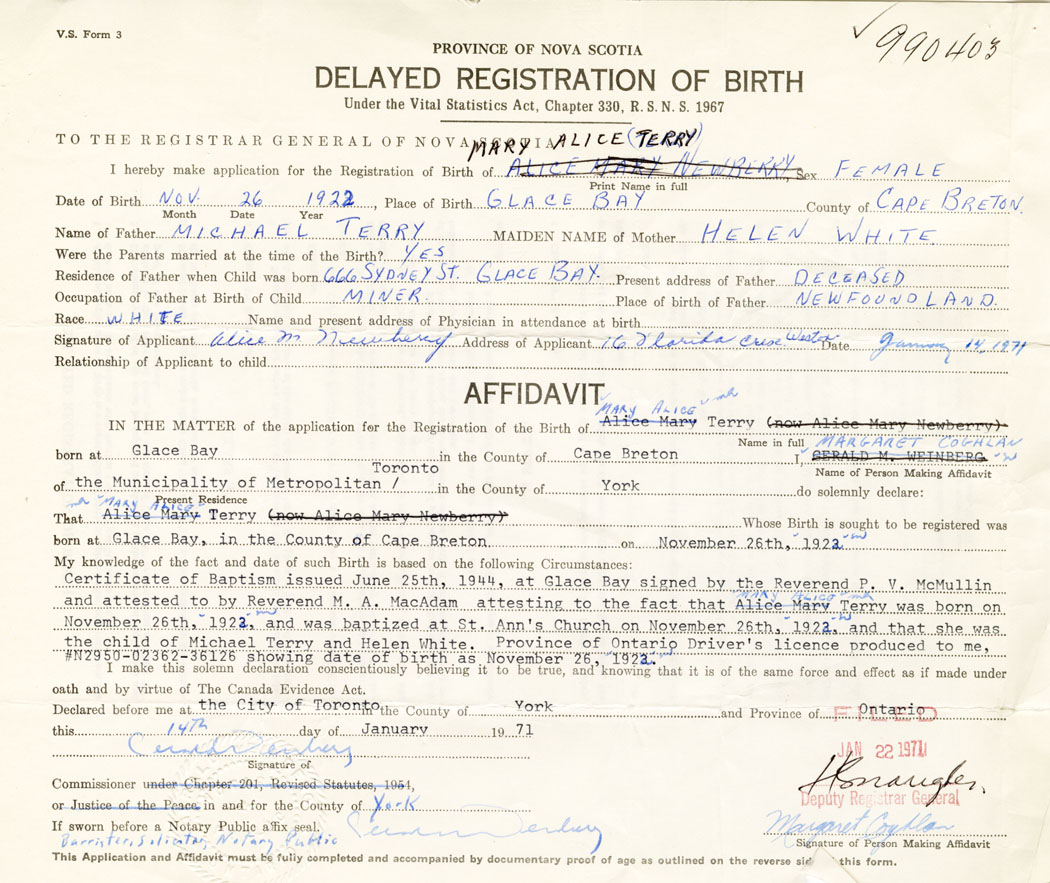 V.S. Form 3
✓ 990403
PROVINCE OF NOVA SCOTIA
DELAYED REGISTRATION OF BIRTH
Under the Vital Statistics Act, Chapter 330, R. S. N. S. 1967
TO THE REGISTRAR GENERAL OF NOVA SCOTIA
MARY ALICE (TERRY)
I hereby make application for the Registration of Birth of ALICE MARY NEWBERRY, Sex FEMALE
Print Name in full
Date of Birth NOV. 26 1922, Place of Birth GLACE BAY County of CAPE BRETON.
Month Date Year
Name of Father MICHAEL TERRY MAIDEN NAME of Mother HELEN WHITE
Were the Parents married at the time of the Birth? YES
Residence of Father when Child was born 666 SYDNEY ST. GLACE BAY. Present address of Father DECEASED
Occupation of Father at Birth of Child MINER. Place of birth of Father NEWFOUNDLAND.
Race WHITE Name and present address of Physician in attendance at birth
Signature of Applicant Alice M Newberry Address of Applicant 16 Florida Cres Weston Date January 14, 1971
Relationship of Applicant to child
AFFIDAVIT
MARY ALICE
IN THE MATTER of the application for the Registration of the Birth of Alice Mary Terry (now Alice Mary Newberry)
Name in full MARGARET COGHLAN
born at Glace Bay in the County of Cape Breton I, GERALD M. WEINBERG
Name of Person Making Affidavit
Toronto
of the Municipality of Metropolitan / in the County of York do solemnly declare:
Present Residence
"MARY ALICE"
That Alice Mary Terry (now Alice Mary Newberry) Whose Birth is sought to be registered was
born at Glace Bay, in the County of Cape Breton on November 26th, 1922
My knowledge of the fact and date of such Birth is based on the following Circumstances:
Certificate of Baptism issued June 25th, 1944, at Glace Bay signed by the Reverend P. V. McMullin
MARY ALICE
and attested to by Reverend M. A. MacAdam attesting to the fact that Alice Mary Terry was born on
November 26th, 1922, and was baptized at St. Ann's Church on November 26th, 1922, and that she was
the child of Michael Terry and Helen White. Province of Ontario Driver's licence produced to me,
#N2950-02362-36126 showing date of birth as November 26, 1922.
I make this solemn declaration conscientiously believing it to be true, and knowing that it is of the same force and effect as if made under
oath and by virtue of The Canada Evidence Act.
Declared before me at the City of Toronto in the County of York and Province of Ontario
FILED
this 14th day of January 1971
JAN 22 1971
Signature of
Deputy Registrar General
Commissioner under Chapter 201, Revised Statutes, 1954,
or Justice of the Peace in and for the County of York
Margaret Coghlan
If sworn before a Notary Public affix seal.
Signature of Person Making Affidavit
Barrister, Solicitor, Notary Public
This Application and Affidavit must be fully completed and accompanied by documentary proof of age as outlined on the reverse side this form.